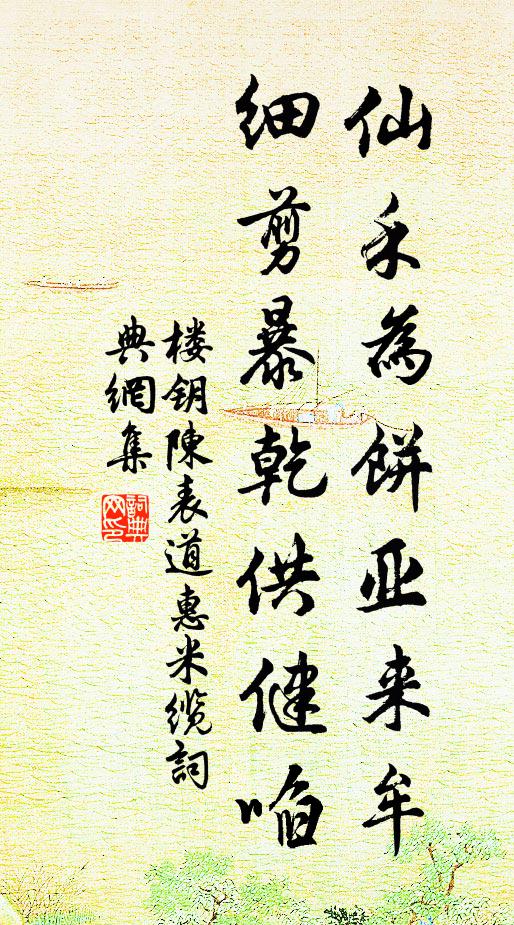 仙禾為餅亚来牟
细剪暴乾供健啗
楼钥陳表道惠米缆詞
典網集
詞典网印